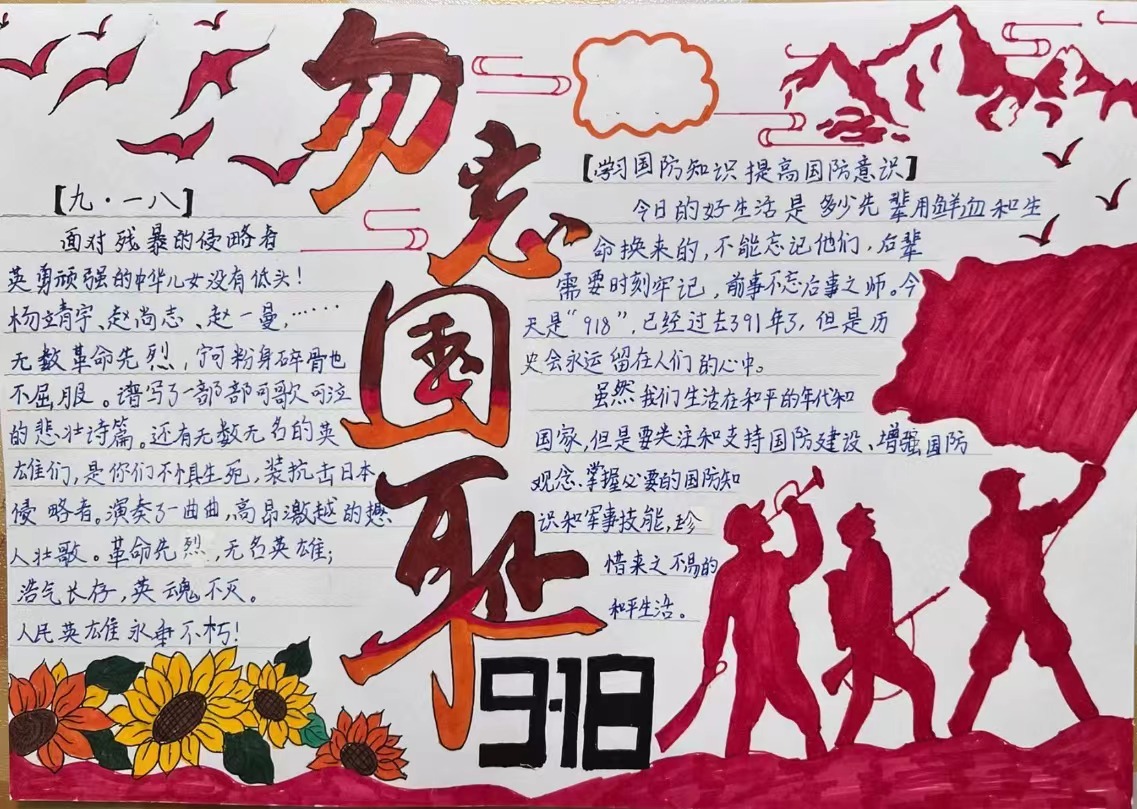 勿忘国耻
9·18
【九·一八】
面对残暴的侵略者
英勇顽强的中华儿女没有低头!
杨靖宇、赵尚志、赵一曼,……
无数革命先烈,宁可粉身碎骨也
不屈服。谱写了一部部可歌可泣
的悲壮诗篇。还有无数无名的英
雄们,是你们不惧生死,装抗击日本
侵略者。演奏了一曲曲,高昂激越的燃
人壮歌。革命先烈,无名英雄;
浩气长存,英魂不灭。
人民英雄永垂不朽!
【学习国防知识 提高国防意识】
今日的好生活是多少先辈用鲜血和生
命换来的,不能忘记他们,后辈
需要时刻牢记,前事不忘后事之师。今
天是“918”,已经过去391年了,但是历
史会永远留在人们的心中。
虽然我们生活在和平的年代和
国家,但是要关注和支持国防建设、增强国防
观念、掌握必要的国防知
识和军事技能,珍
惜来之不易的
和平生活。